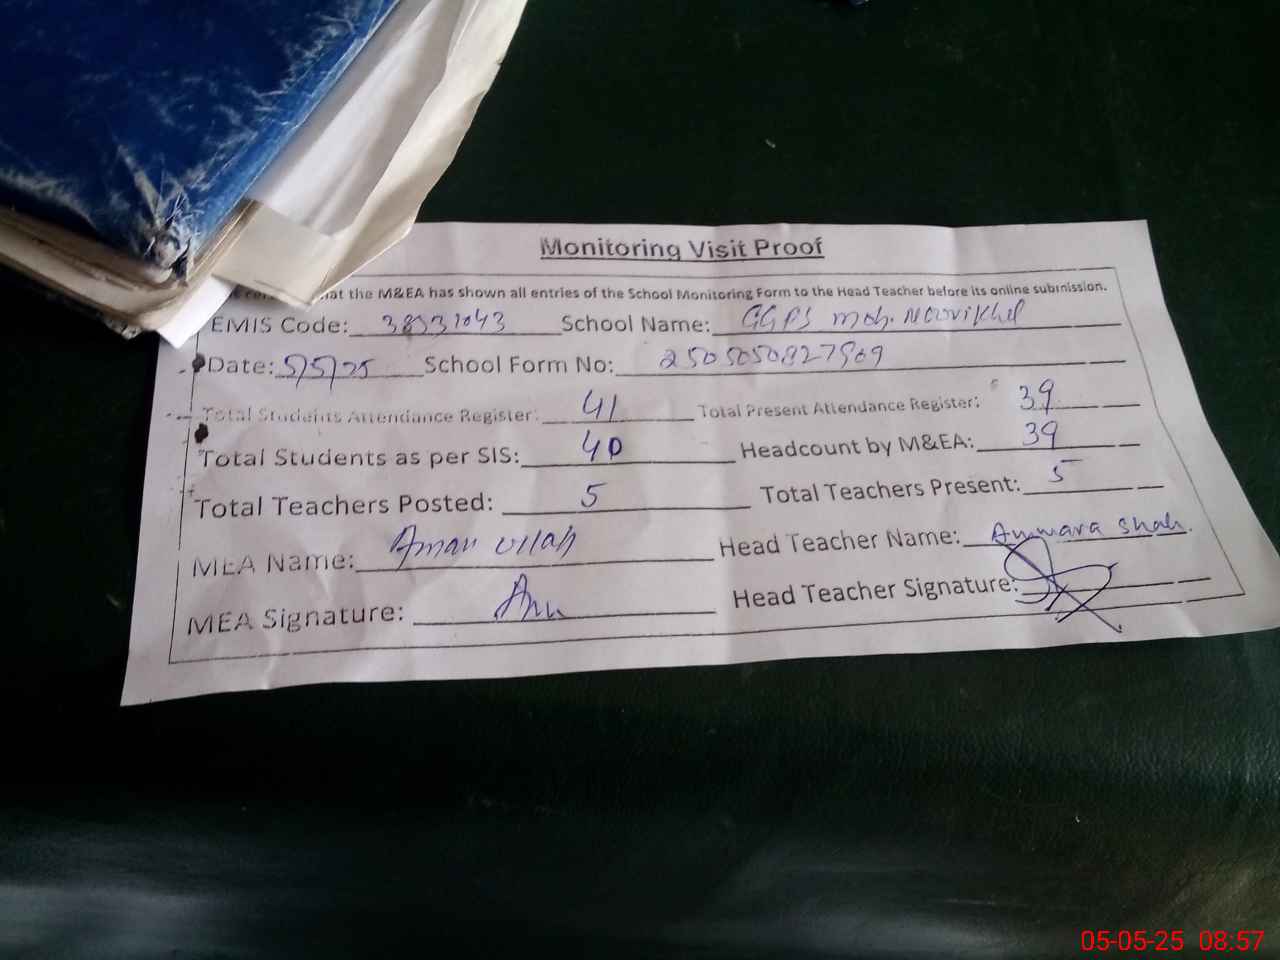 Monitoring Visit Proof
at the M&EA has shown all entries of the School Monitoring Form to the Head Teacher before its online submission.
EMIS Code: 38331043 School Name: GGPS Moh. Noorikhel
Date: 5/5/25 School Form No: 2505050827509
Total Students Attendance Register: 41 Total Present Attendance Register: 39
Total Students as per SIS: 40 Headcount by M&EA: 39
Total Teachers Posted: 5 Total Teachers Present: 5
MEA Name: Aman ullah Head Teacher Name: Anwara Shah.
MEA Signature: Head Teacher Signature:
05-05-25 08:57